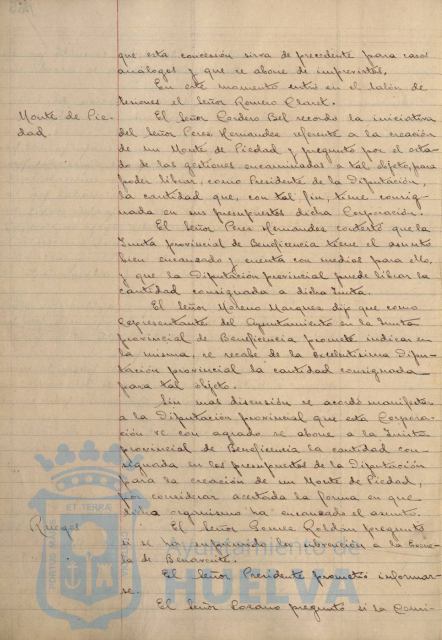 que esta concesión sirva de precedente para casos
análogos y que se abone de imprevistos.
En este momento entró en el salón de
sesiones el Señor Romero Claret.
Monte de Pie-
dad
El Señor Cordero Bel recordó la iniciativa
del Señor Perez Hernandez referente a la creación
de un Monte de Piedad y preguntó por el esta-
do de las gestiones encaminadas a tal objeto, para
poder librar, como Presidente de la Diputación,
la cantidad que, con tal fin, tiene consig-
nada en sus presupuestos dicha Corporación.
El Señor Perez Hernandez contestó que la
Junta provincial de Beneficencia tiene el asunto
bien encauzado y cuenta con medios para ello,
y que la Diputación provincial puede librar la
cantidad consignada a dicha Junta.
El Señor Moreno Marquez dijo que como
Representante del Ayuntamiento en la Junta
provincial de Beneficencia prometé indicar en
la misma, se recabe de la Excelentisima Dipu-
tación provincial la cantidad consignada
para tal objeto.
Sin mas discusión se acordó manifestar
a la Diputación provincial que esta Corpora-
ción ve con agrado se abone a la Junta
provincial de Beneficencia la cantidad con-
signada en los presupuestos de la Diputación
para la creación de un Monte de Piedad,
por considerar acertada la forma en que
dicho organismo ha encauzado el asunto.
Ruegos
El Señor Gomez Roldán preguntó
si se ha suprimido la subvención a la Escue-
la de Benavente.
El Señor Presidente prometió informar-
se.
El Señor Lozano preguntó si la Comi-
PORTUS MARIS ET TERRAE
Ayuntamiento de
HUELVA